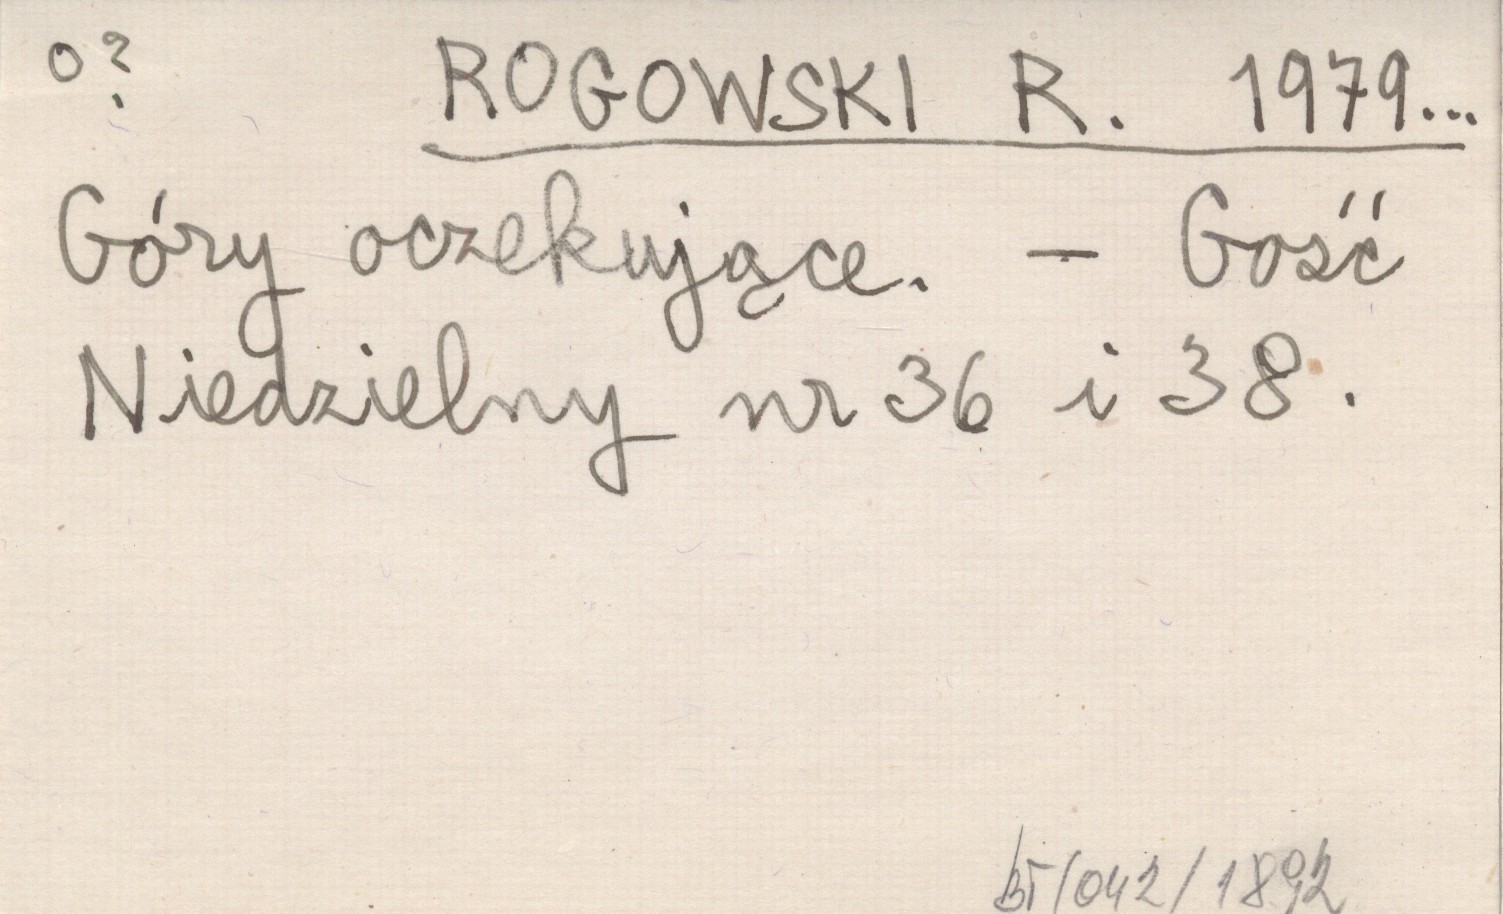 o? ROGOWSKI R. 1979...
Góry oczekujące. – Gość
Niedzielny nr 36 i 38.
BT/042/1892